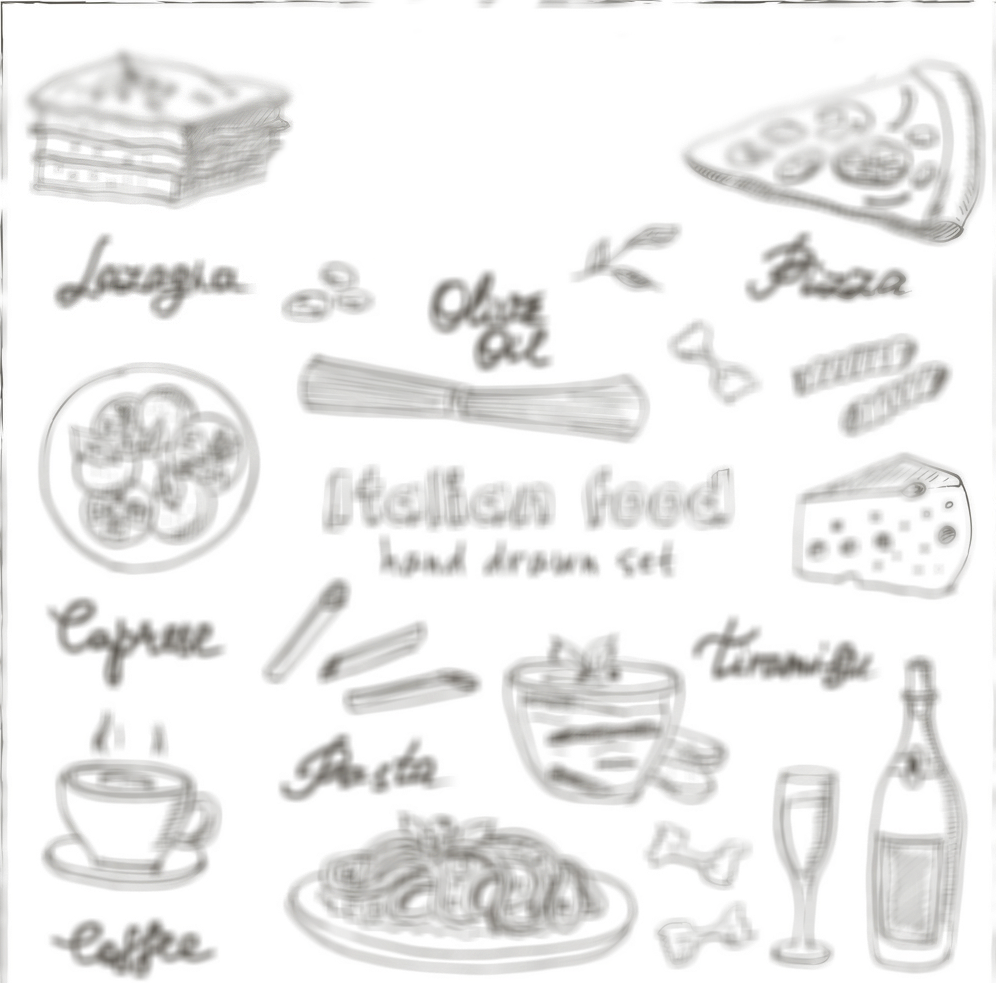 Lazagia
Olive
Oil
Pizza
Italian food
hand drawn set
Caprese
Tiramisu
Pasta
Coffee